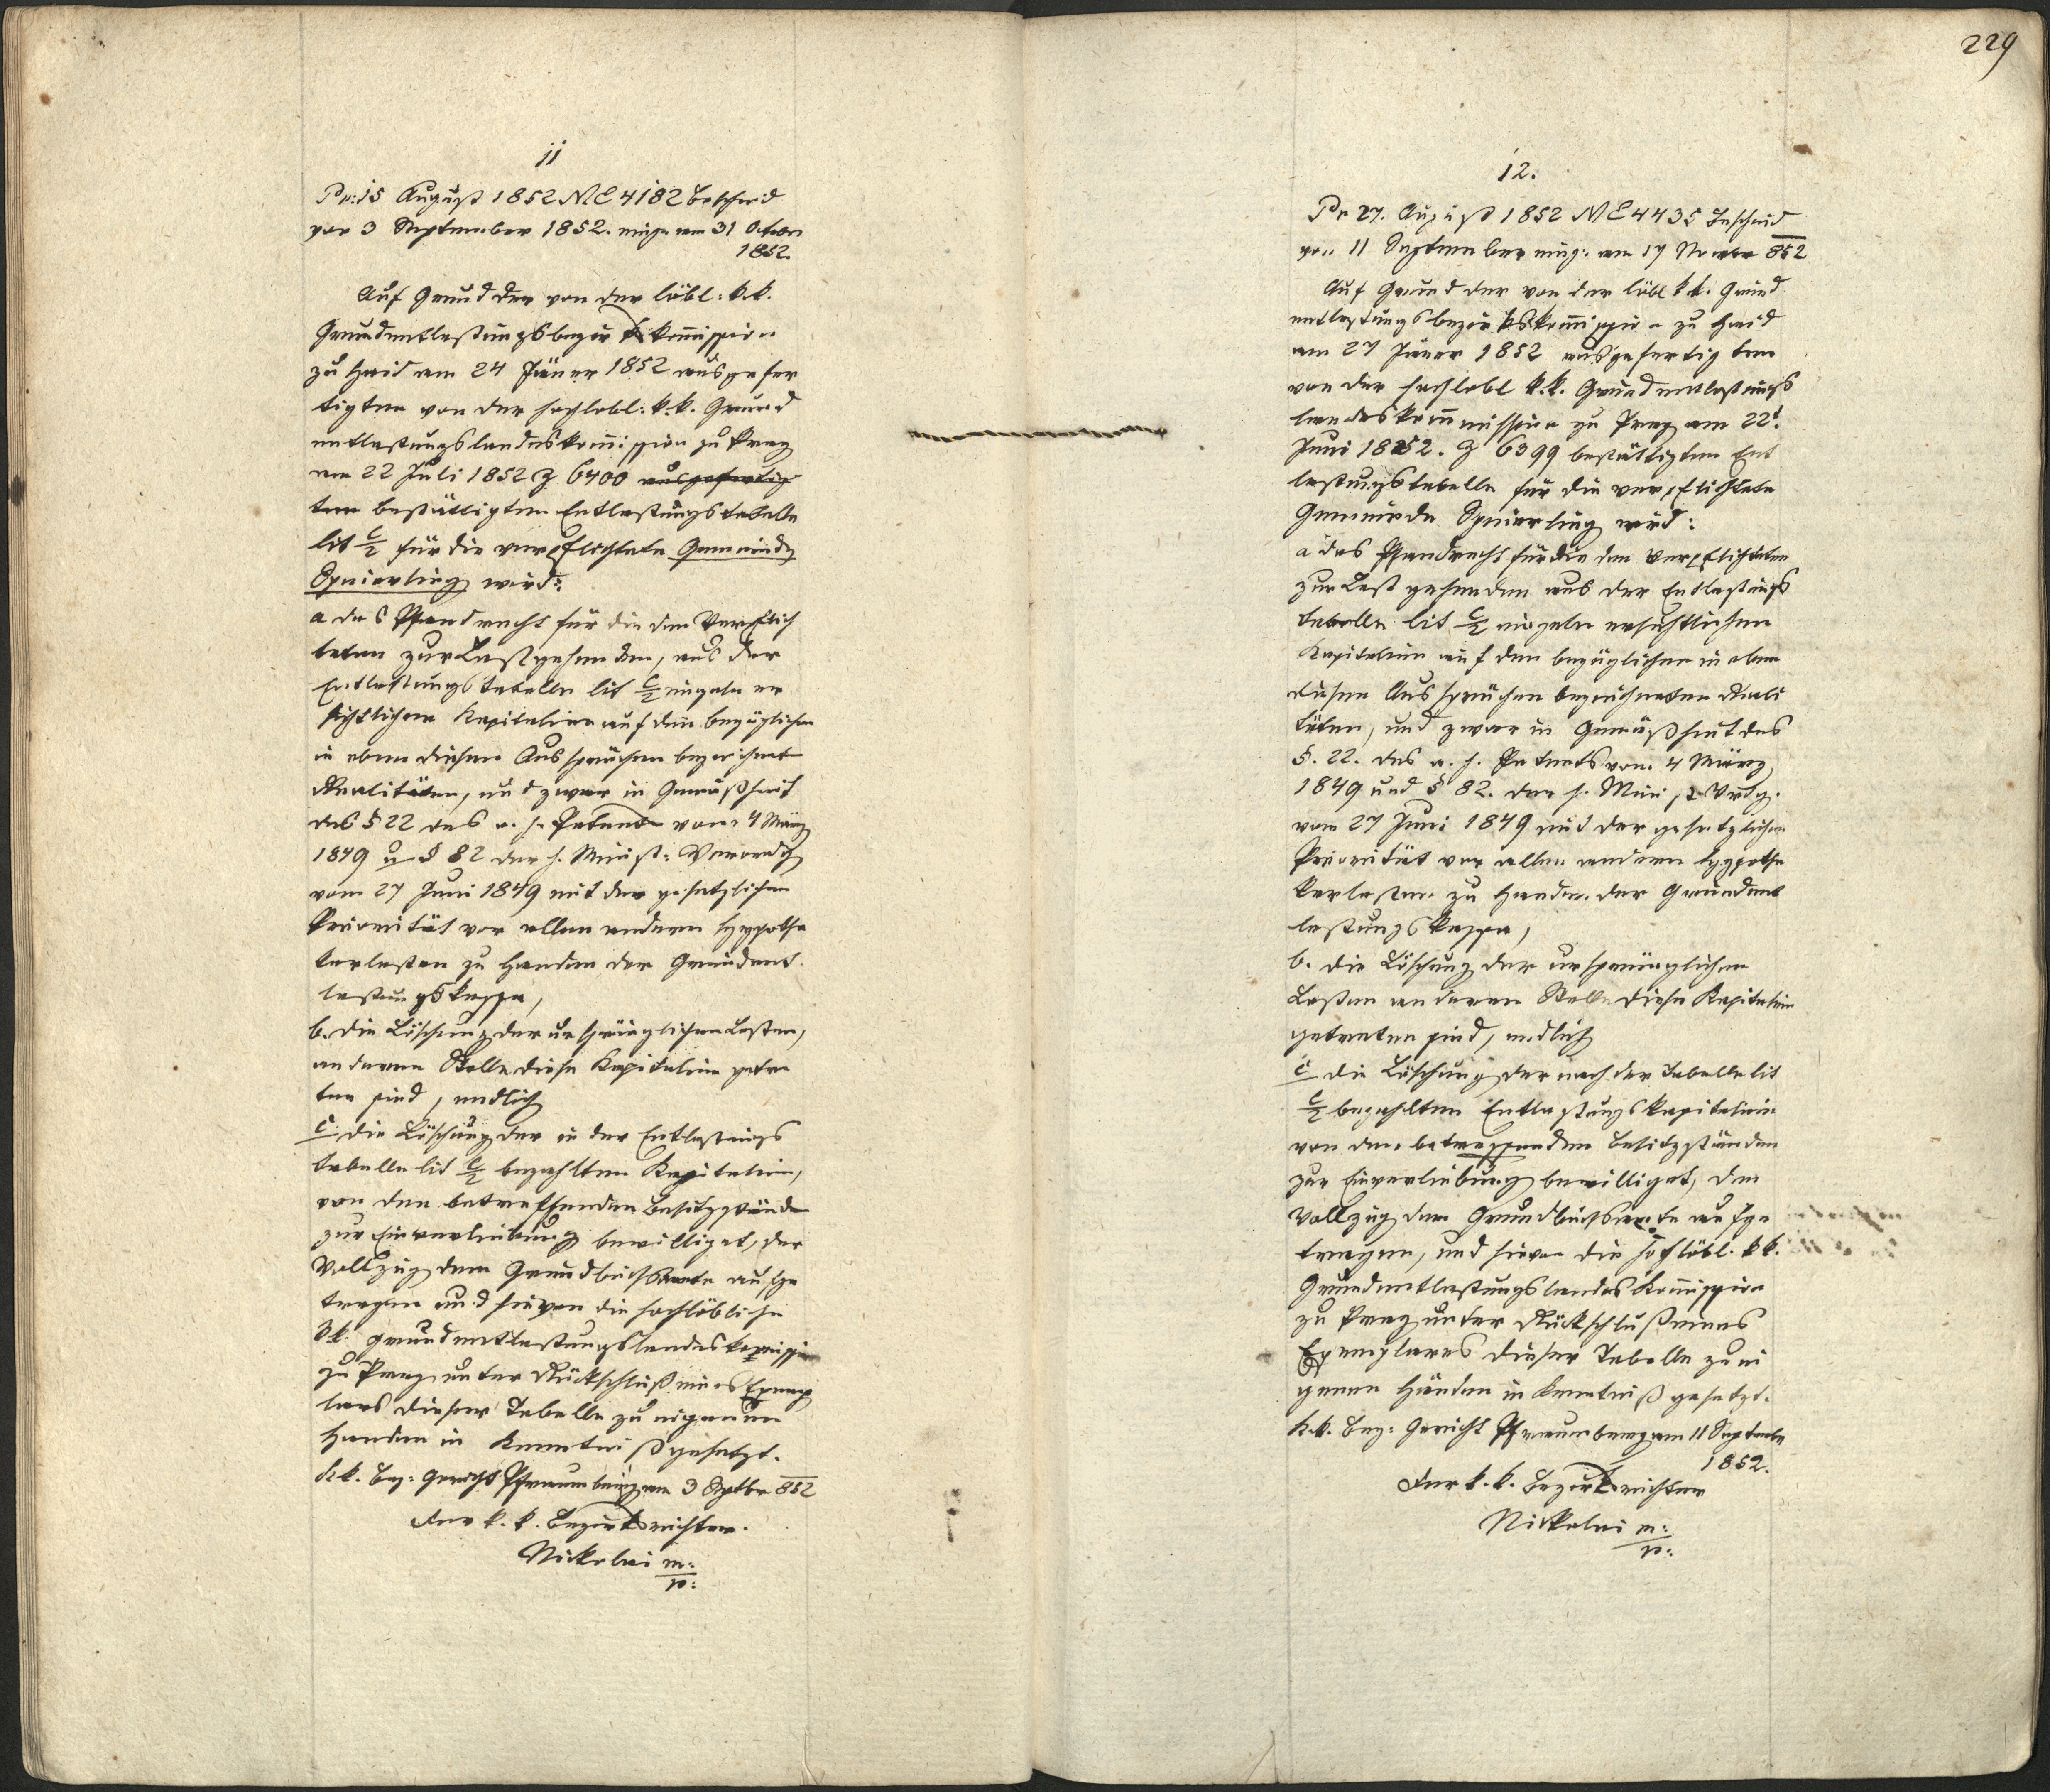 11
Pr: 15 August 1852 NE 4182 Bescheid
von 3 September 1852. eing. am 31 October
1852.
Auf Grund der von der löbl: k.k.
Grundentlastungsbezirkskom̄ission
zu Haid am 24 Jäner 1852 ausgefer
tigten von der hochlobl: k.k. Grund
entlastungslandeskom̄ission zu Prag
am 22 Juli 1852 Z 6400 ausgefertig
ten bestättigten Entlastungstabelle
lit C/2 für die verpflichtete Gemeinde
Speierling wird:
a das Pfandrecht für die den Verpflich
teten zur Last gehenden, aus der
Entlastungstabelle lit C/2 einzeln er
sichtlichen Kapitalien auf den bezüglichen
in eben diesen Aussprüchen bezeichnet
Realitäten, und zwar in Gemäßheit
des § 22 des a. h. Patents vom 4 März
1849 u § 82 der h. Minist: Verordg
vom 27 Juni 1849 mit der gesetzlichen
Priorität vor allen andern Hypothe
karlasten zu Handen der Grundent
lastungskassa,
b. die Löschung der ursprünglichen Lasten,
an deren Stelle diese Kapitalien getre
ten sind, endlich
c die Löschung der in der Entlastungs
tabelle lit C/2 bezahlten Kapitalien,
von den betreffenden Besitzstände
zur Einverleibung bewilliget, der
Vollzug dem Grundbuchsamte aufge
tragen und hievon die hochlöbliche
k.k. Grundentlastungslandeskom̄ission
zu Prag unter Rückschluß eines Exemp
lars dieser Tabelle zu eigenen
Handen in Kenntniß gesetzt.
k.k. Bez: Gericht Pfraumberg am 3 Septbr 852
Der k. k. Bezirksrichter.
Nickolai m:
p:
229
12.
Pr 27. August 1852 NE 4435 Bescheid
von 11 September eing: am 17 Novbr 852
Auf Grund der von der löbl k.k. Grund
entlastungsbezirkskom̄ission zu Haid
am 27 Jäner 1852 ausgefertigten
von der hochlobl k.k. Grundentlastungs
landeskom̄mission zu Prag am 22t
Juni 1852. Z 6399 bestättigten Ent
lastungstabelle für die verpflichtete
Gemeinde Speierling wird:
a das Pfandrecht für die den Verpflichteten
zur Last gehenden aus der Entlastungs
tabelle lit C/2 einzeln ersichtlichen
Kapitalien auf den bezüglichen in eben
diesen Aussprüchen bezeichneten Reali
täten, und zwar in Gemäßheit des
§. 22. des a. h. Patents vom 4 März
1849 und § 82. der h. Minist Vrdg.
vom 27 Juni 1849 mit der gesetzlichen
Priorität vor allen andern Hypothe
karlasten zu Handen der Grundent
lastungskassa,
b. die Löschung der ursprünglichen
Lasten an deren Stelle diese Kapitalien
getreten sind, endlich
c die Löschung der nach der Tabelle lit
C/2 bezahlten Entlastungskapitalien
von den betreffenden Besitzständen
zur Einverleibung bewilliget, der
Vollzug dem Grundbuchsamte aufge
tragen, und hievon die hochlöbl. k.k.
Grundentlastungslandeskom̄ission
zu Prag unter Rückschluß eines
Exemplares dieser Tabelle zu ei
genen Händen in Kenntniß gesetzt.
k.k. Bez: Gericht Pfraumberg am 11 Septembr
1852.
Der k.k. Bezirksrichter
Nickolai m:
p: